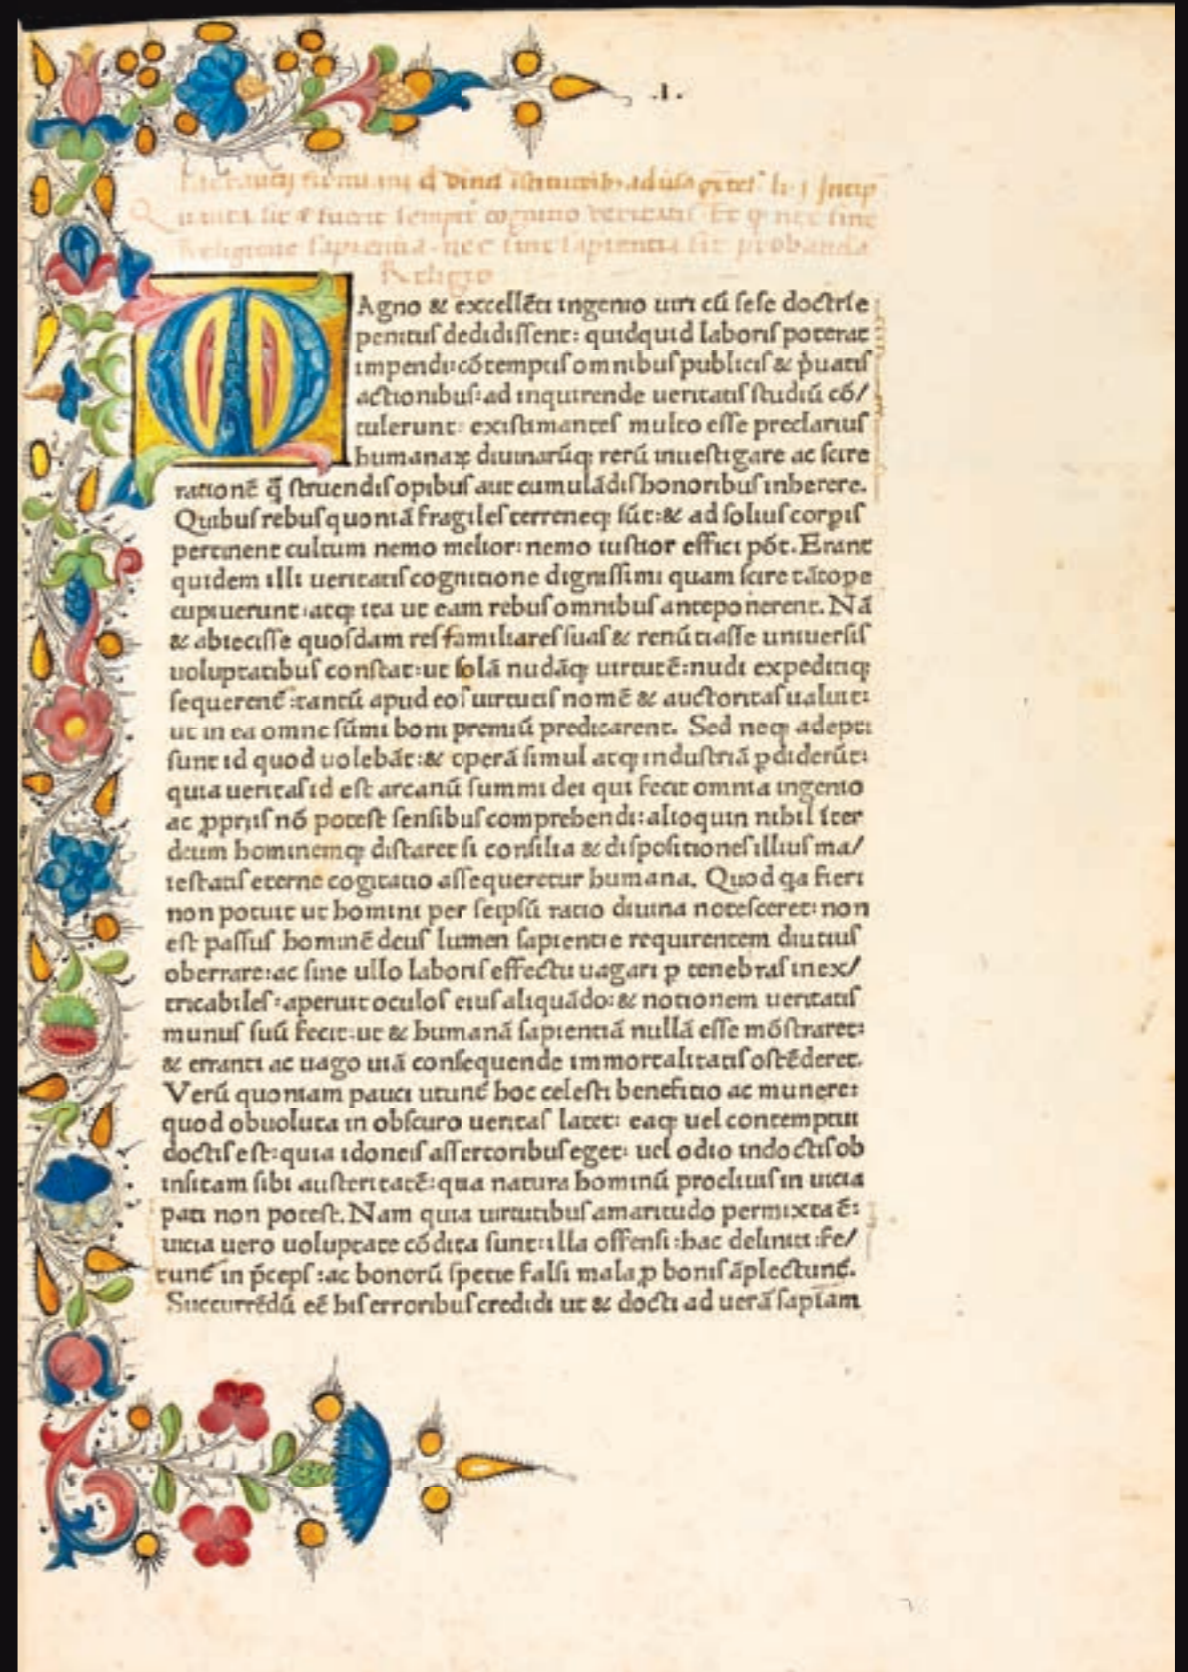 .I.
ad
sempre cognitio veritatis Et q nec sine
Religione sapientia. nec sine sapientia sit probanda
Religio
MAgno & excellēti ingenio uiri cū sese doctrīe
penitus dedidissent: quidquid laboris poterat
impendi: cōtemptis omnibus publicis & p̄uatis
actionibus: ad inquirende ueritatis studiū cō/
tulerunt: existimantes multo esse preclarius
humanaꝝ diuinarūqꝫ rerū inuestigare ac scire
rationē q̄ struendis opibus aut cumulādis honoribus inherere.
Quibus rebus quoniā fragiles terreneqꝫ sūt: & ad solius corpis
pertinent cultum nemo melior: nemo iustior effici pōt. Erant
quidem illi ueritatis cognitione dignissimi quam scire tātope
cupiuerunt: atqꝫ ita ut eam rebus omnibus anteponerent. Nā
& abiecisse quosdam res familiares suas & renūtiasse uniuersis
uoluptatibus constat: ut solā nudāqꝫ uirtutē: nudi expeditiqꝫ
sequerent̄: tantū apud eos uirtutis nomē & auctoritas ualuit:
ut in ea omne sūmi boni premiū predicarent. Sed neqꝫ adepti
sunt id quod uolebāt: & operā simul atqꝫ industriā ꝑdiderūt:
quia ueritas id est arcanū summi dei qui fecit omnia ingenio
ac ꝓpriis nō potest sensibus comprehendi: alioquin nihil īter
deum hominemqꝫ distaret si consilia & dispositiones illius ma/
iestatis eterne cogitatio assequeretur humana. Quod qa fieri
non potuit ut homini per seipsū ratio diuina notesceret: non
est passus hominē deus lumen sapientie requirentem diutius
oberrare: ac sine ullo laboris effectu uagari ꝑ tenebras inex/
tricabiles: aperuit oculos eius aliquādo: & notionem ueritatis
munus suū fecit: ut & humanā sapientiā nullā esse mōstraret:
& erranti ac uago uiā consequende immortalitatis ostēderet.
Verū quoniam pauci utunt̄ hoc celesti benefitio ac munere:
quod obuoluta in obscuro ueritas latet: eaqꝫ uel contemptui
doctis est: quia idoneis assertoribus eget: uel odio indoctis ob
insitam sibi austeritatē: qua natura hominū procliuis in uicia
pati non potest. Nam quia uirtutibus amaritudo permixta ē:
uicia uero uoluptate cōdita sunt: illa offensi: hac deliniti: fe/
runt̄ in p̄ceps: ac bonorū specie falsi mala ꝓ bonis āplectunt̄.
Succurrēdū eē his erroribus credidi ut & docti ad uerā sapīam